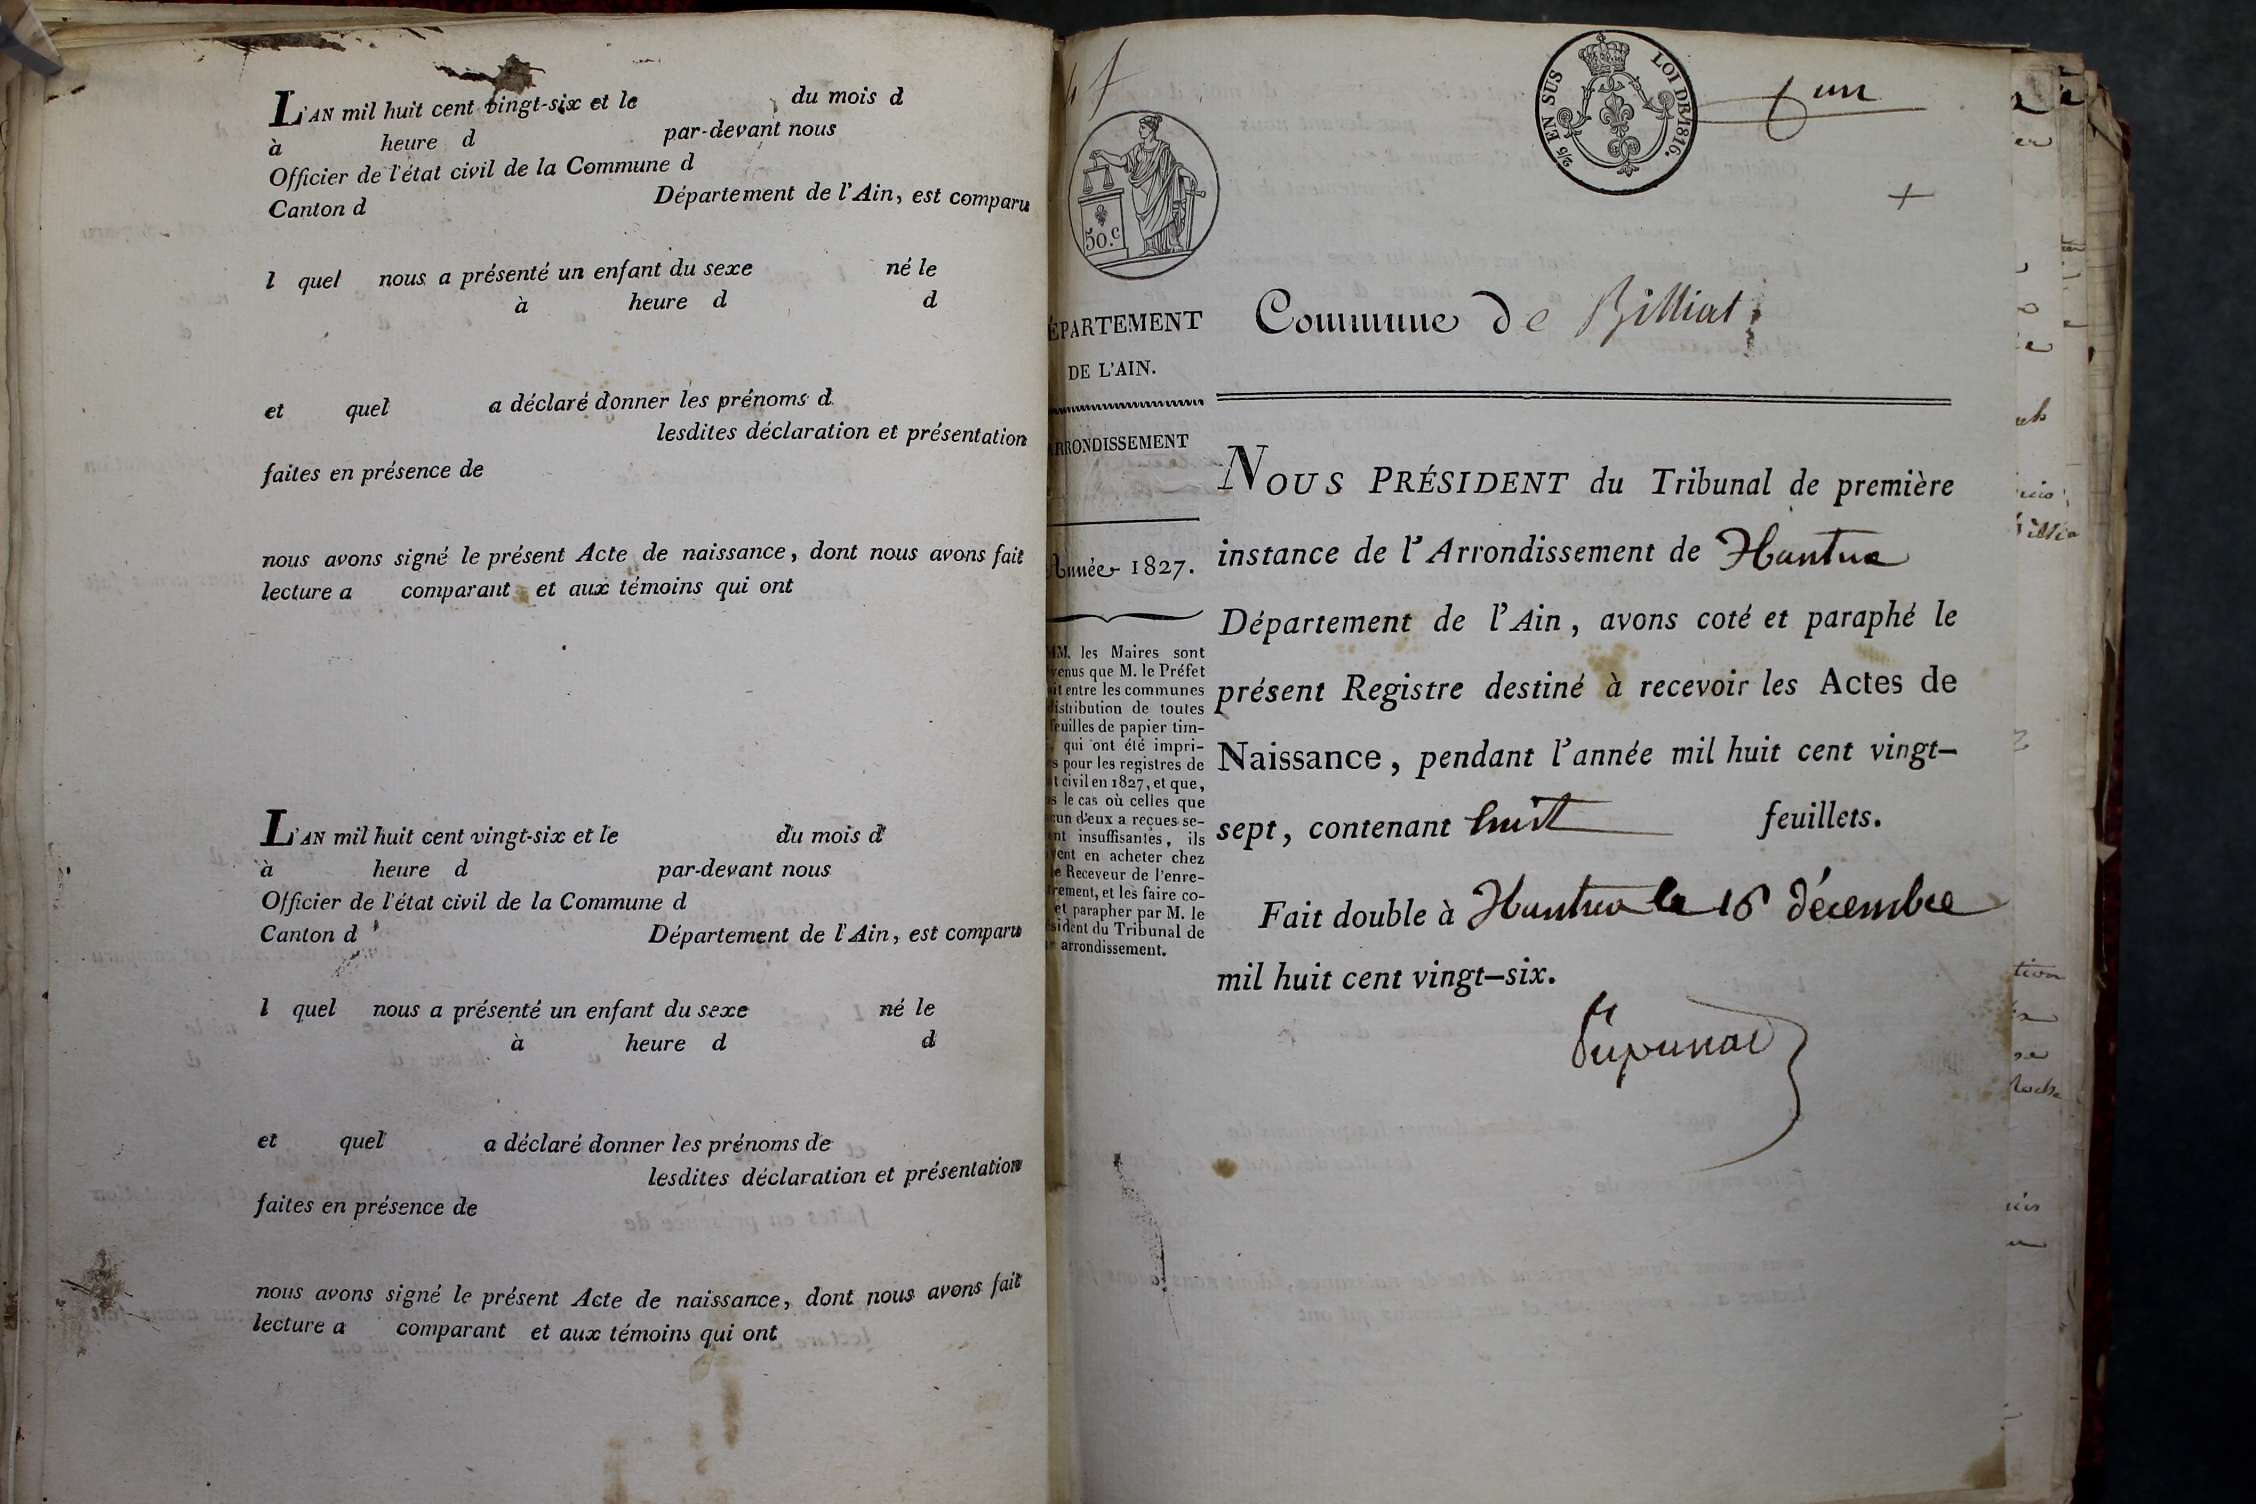 L'AN mil huit cent vingt-six et le du mois d
à heure d par-devant nous
Officier de l'état civil de la Commune d
Canton d Département de l'Ain, est comparu
l quel nous a présenté un enfant du sexe né le
à heure d d
et quel a déclaré donner les prénoms d
lesdites déclaration et présentation
faites en présence de
nous avons signé le présent Acte de naissance, dont nous avons fait
lecture a comparant et aux témoins qui ont
L'AN mil huit cent vingt-six et le du mois d
à heure d par-devant nous
Officier de l'état civil de la Commune d
Canton d Département de l'Ain, est comparu
l quel nous a présenté un enfant du sexe né le
à heure d d
et quel a déclaré donner les prénoms de
lesdites déclaration et présentation
faites en présence de
nous avons signé le présent Acte de naissance, dont nous avons fait
lecture a comparant et aux témoins qui ont
2/5 EN SUS LOI DE 1816.
un
50.c
Commune de Billiat
ÉPARTEMENT
DE L'AIN.
ARRONDISSEMENT
Année 1827.
MM. les Maires sont
venus que M. le Préfet
ait entre les communes
distribution de toutes
feuilles de papier tim-
, qui ont été impri-
s pour les registres de
t civil en 1827, et que,
s le cas où celles que
cun d'eux a reçues se-
ent insuffisantes, ils
vent en acheter chez
le Receveur de l'enre-
trement, et les faire co-
et parapher par M. le
ésident du Tribunal de
arrondissement.
NOUS PRÉSIDENT du Tribunal de première
instance de l'Arrondissement de Nantua
Département de l'Ain, avons coté et paraphé le
présent Registre destiné à recevoir les Actes de
Naissance, pendant l'année mil huit cent vingt-
sept, contenant huit feuillets.
Fait double à Nantua le 16 décembre
mil huit cent vingt-six.